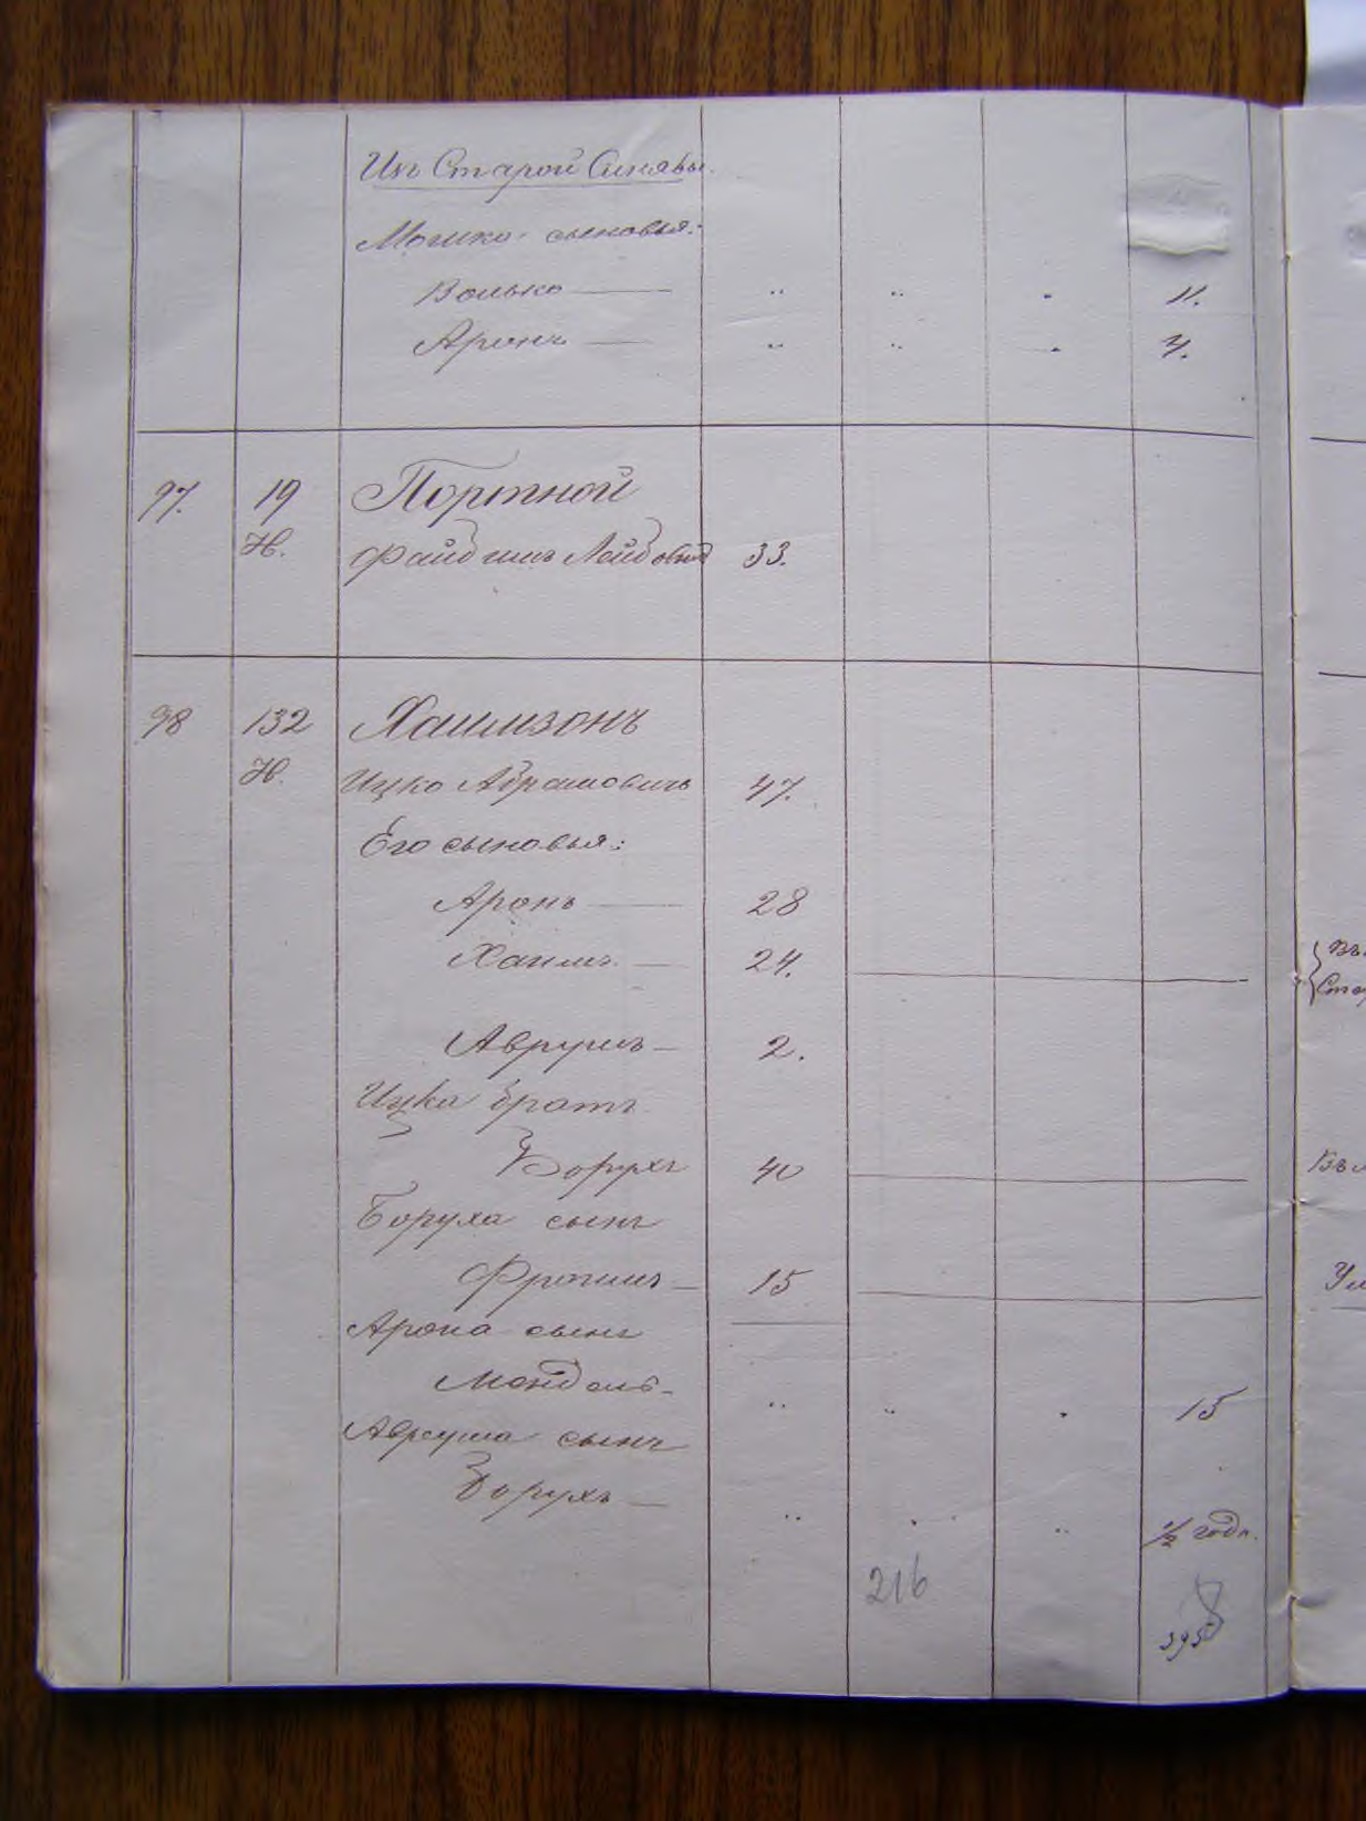 Изъ Старой Синявы.
Мошко сыновья:
Волько — " " " 11.
Аронъ — " " " 4.
97. 19 Портной
Н. Файвишъ Лейбовичъ 33.
98 132 Хаимзонъ
Н. Ицко Абрамовичъ 47.
Его сыновья:
Аронъ — 28
Хаимъ — 24.
Аврумъ — 2.
Ицка братъ
Борухъ 40
Боруха сынъ
Фроимъ — 15
Арона сынъ
Мендель - " " " 15
Аврума сынъ
Борухъ — " " " 1/2 года.
216
395
{ Въ
Ста
Въ
Ум